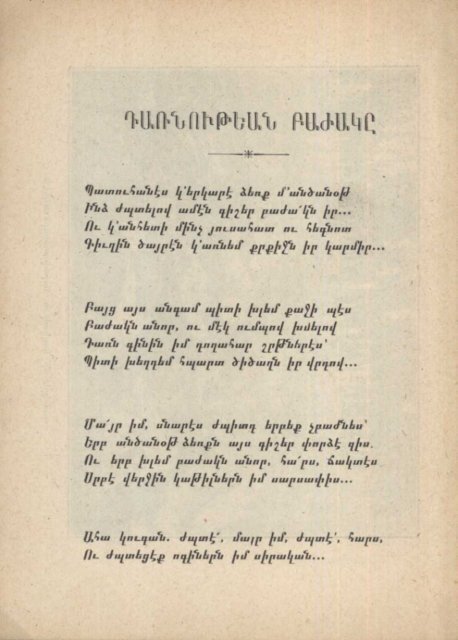 ԴԱՌՆՈՒԹԵԱՆ ԲԱԺԱԿԸ
Պատուհանէս կ՚երկարէ ձեռք մ՚անծանօթ
Ինձ ժպտելով ամէն գիշեր բաժա՛կն իր...
Ու կ՚անհետի մինչ յուսահատ ու հեգնոտ
Գիւղին ծայրէն կ՚առնեմ քրքիջն իր կարմիր...
Բայց այս անգամ պիտի խլեմ քաջի պէս
Բաժակն անոր, ու մէկ ումպով խմելով
Դառն գինին իմ դողահար շրթներէս՝
Պիտի խեղդեմ հպարտ ծիծաղն իր վրդով...
Մա՛յր իմ, սնարէս ժպիտդ երբեք չբաժնես՝
Երբ անծանօթ ձեռքն այս գիշեր փորձէ զիս.
Ու երբ խլեմ բաժակն անոր, հա՛րս, ճակտէս
Սրբէ վերջին կաթիլներն իմ սարսափիս...
Ահա կուգան. ժպտէ՛, մայր իմ, ժպտէ՛, հարս,
Ու ժպտեցէք ոգիներն իմ սիրական...